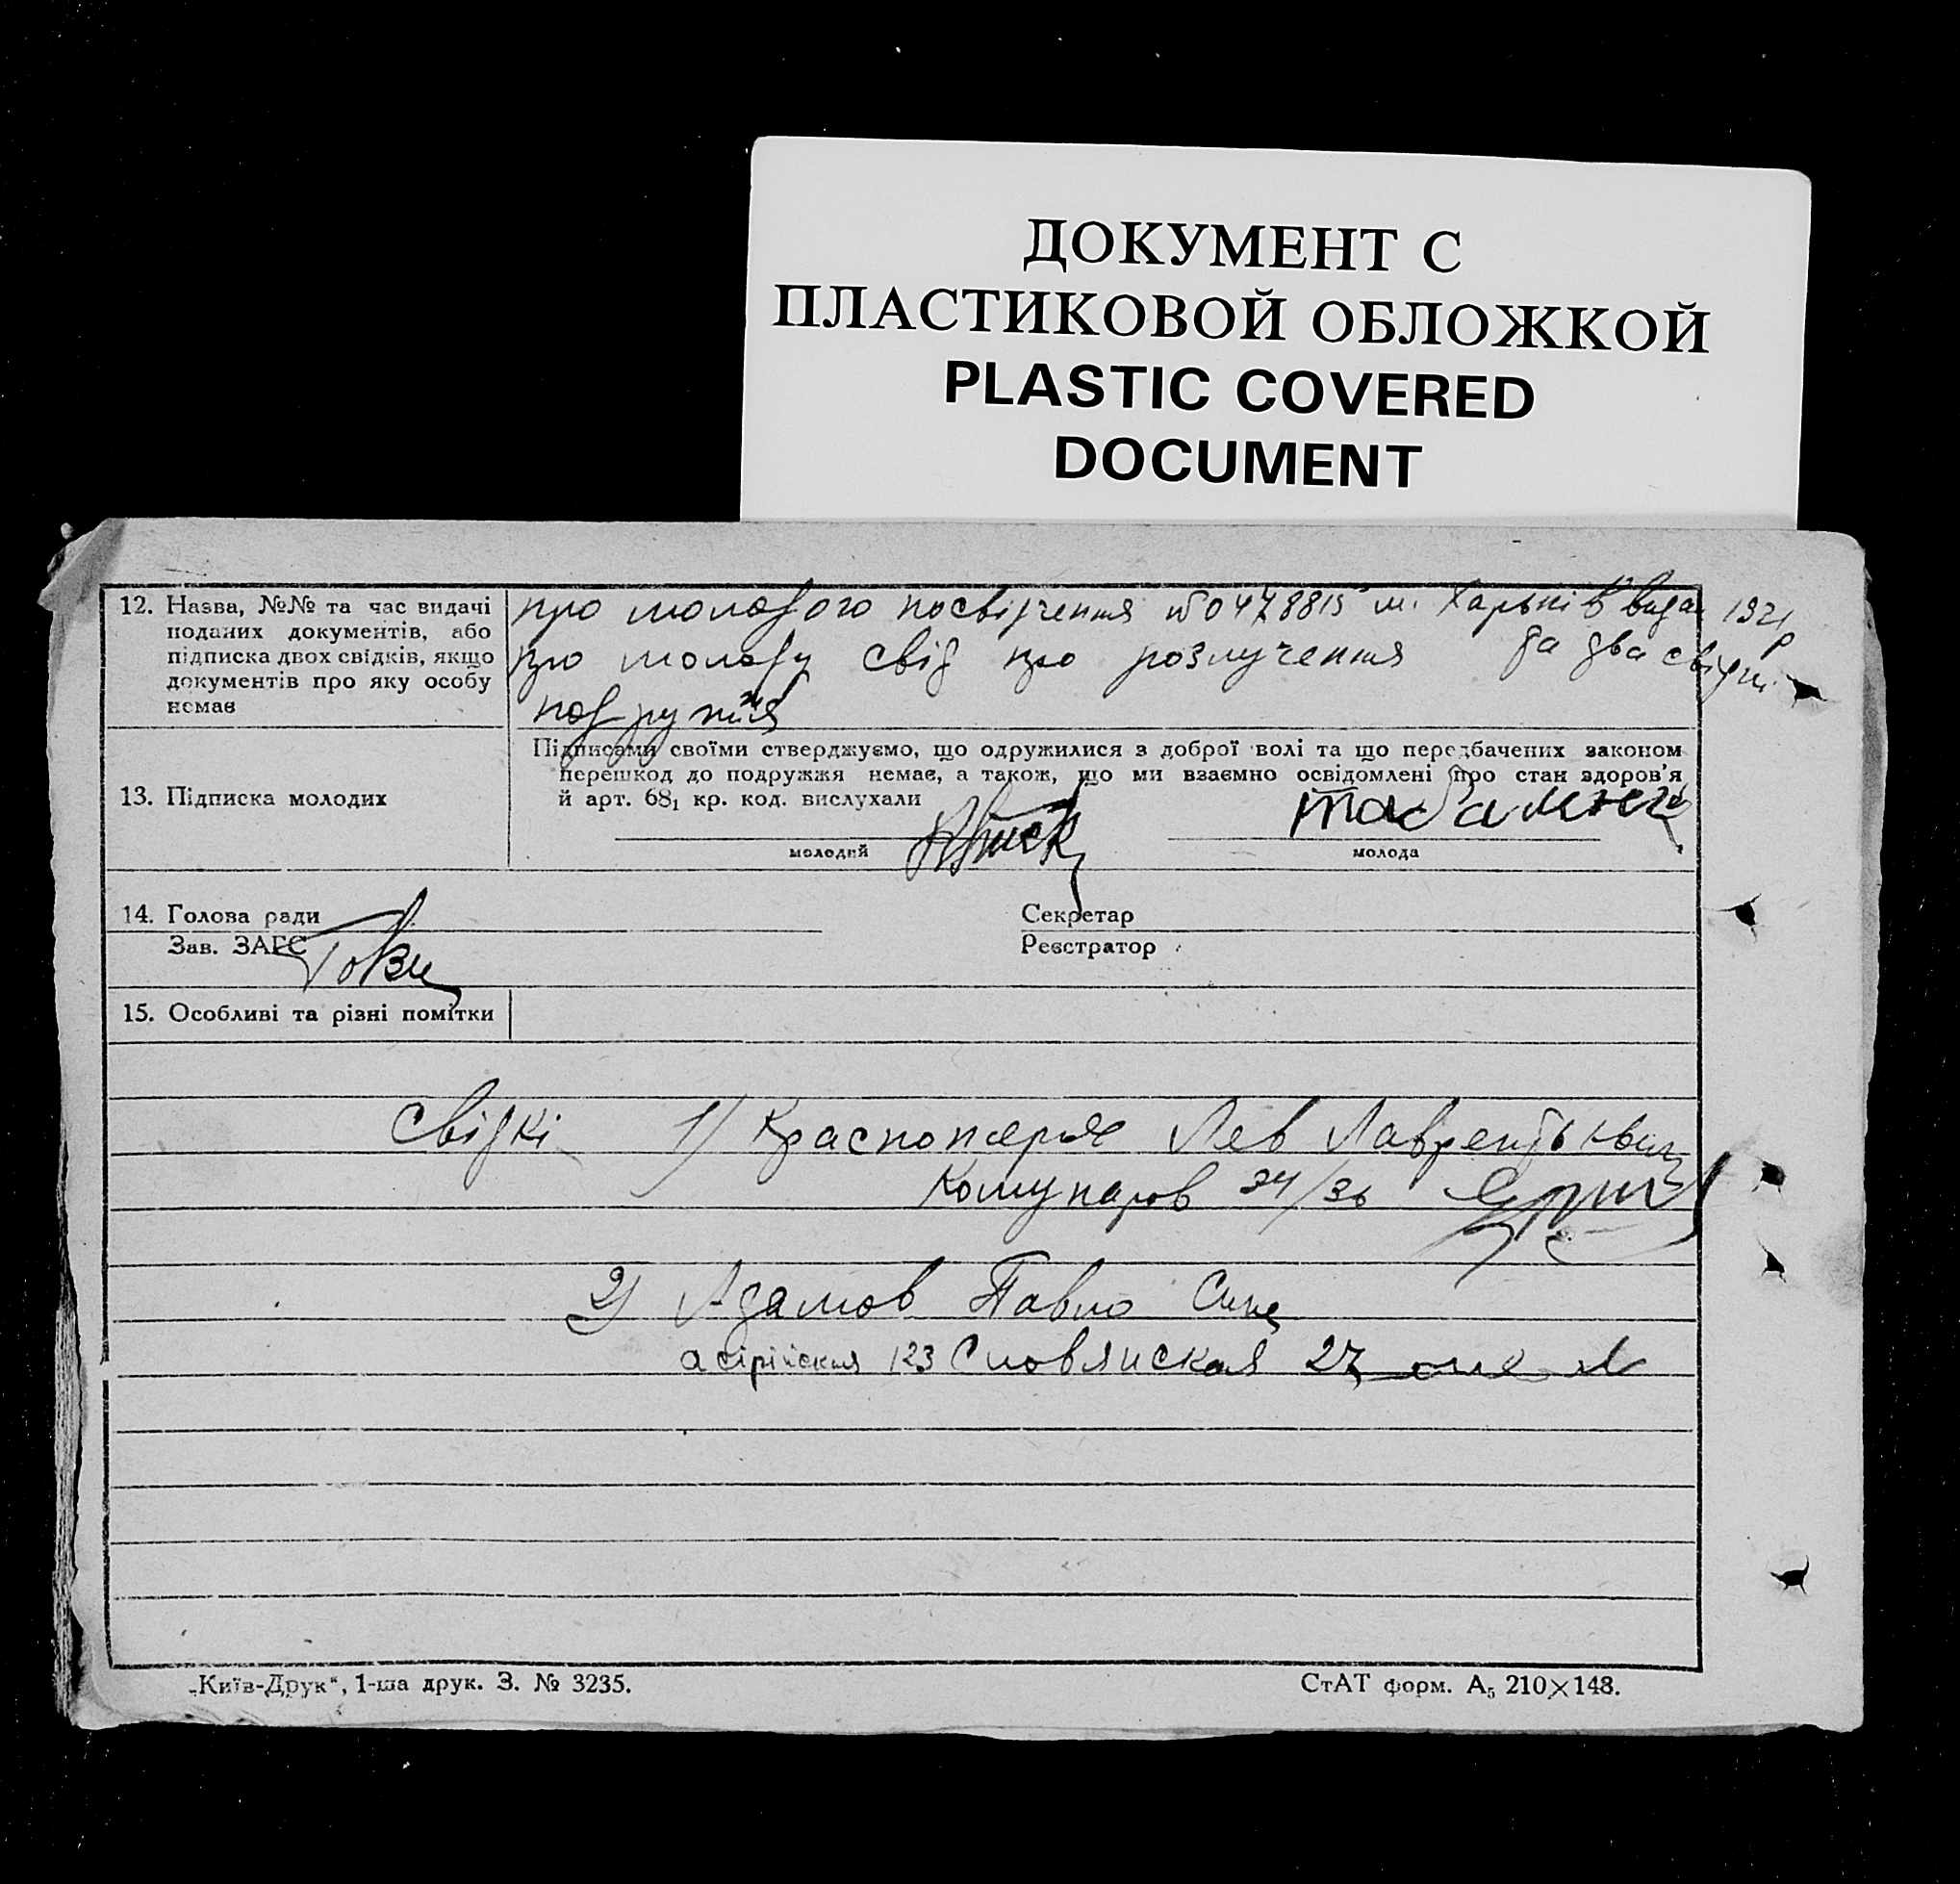 ДОКУМЕНТ С
ПЛАСТИКОВОЙ ОБЛОЖКОЙ
PLASTIC COVERED
DOCUMENT
12. Назва, №№ та час видачі
поданих документів, або
підписка двох свідків, якщо
документів про яку особу
немає
про молодого посвідчення № 0478815 м. Харьків видан 1921 р
про молоду свід про розлучення да два свідки
подружжя
13. Підписка молодих
Підписами своїми стверджуємо, що одружилися з доброї волі та що передбачених законом
перешкод до подружжя немає, а також, що ми взаємно освідомлені про стан здоров'я
й арт. 68₁ кр. код. вислухали
молодий
молода
14. Голова ради
Секретар
Зав. ЗАГС
Реєстратор
15. Особливі та різні помітки
Свідкі 1/ Лев Лаврентьевич
Комунаров 34/36
2) Адамов Павло
асірійская 123 Словянская 27
„Київ-Друк“, 1-ша друк. З. № 3235.
СтАТ форм. А₅ 210×148.